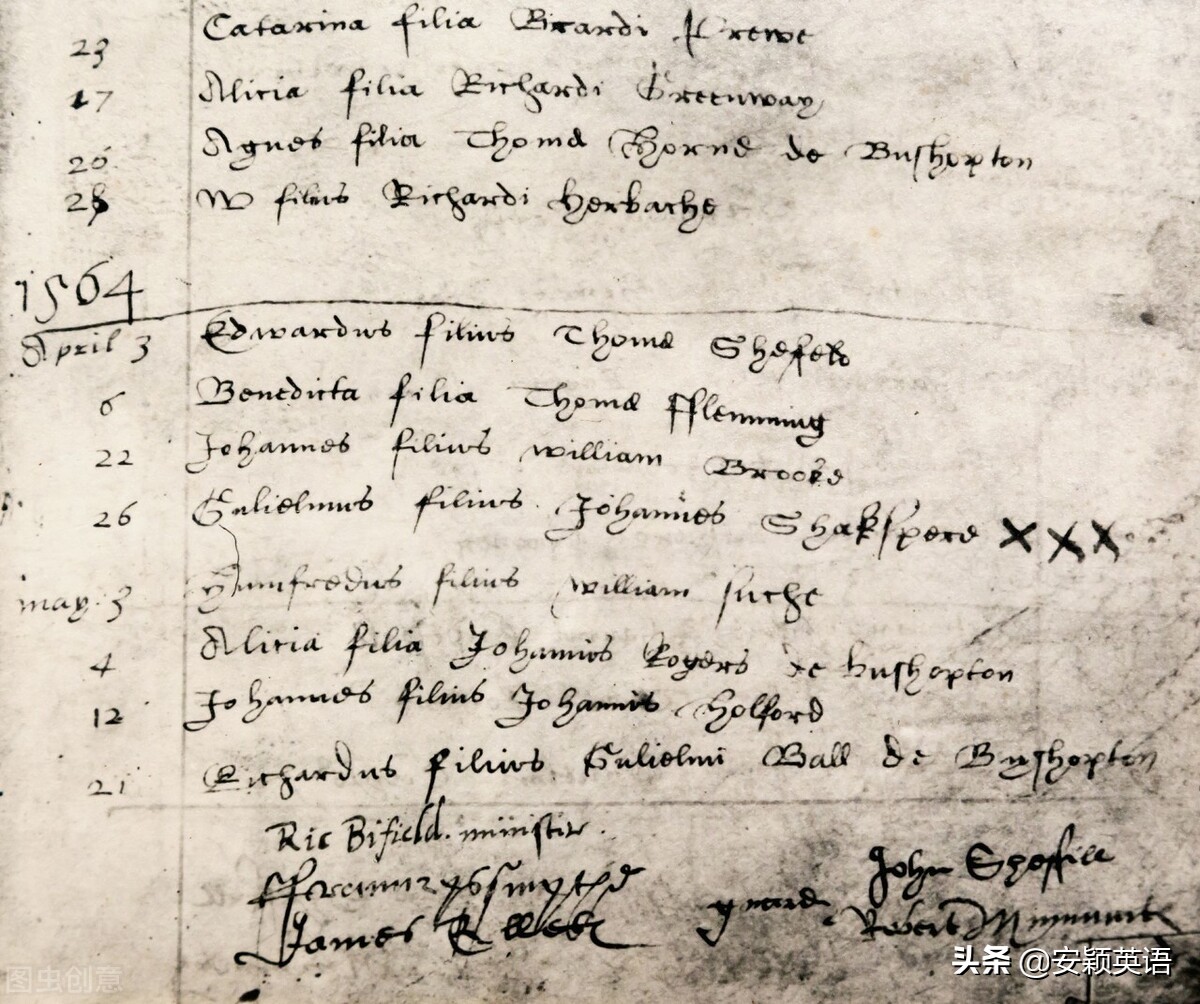 23 Catarina filia Ricardi
17 Alicia filia Richardi Greenway
26 Agnes filia Thomæ Horne de Bushopton
28 W filius Richardi Herbache
1564
April 3 Edwardus filius Thomæ Shefeld
6 Benedicta filia Thomæ fflemming
22 Johannes filius william Brooke
26 Gulielmus filius Johannes Shakspere XXX
may 3 filius william
4 Alicia filia Johannis Rogers de bushopton
12 Johannes filius Johannis Holford
21 Richardus filius Gulielmi Ball de Byshopton
Ric Bifield. minister.
James John
Robert
头条 @安颖英语
图虫创意